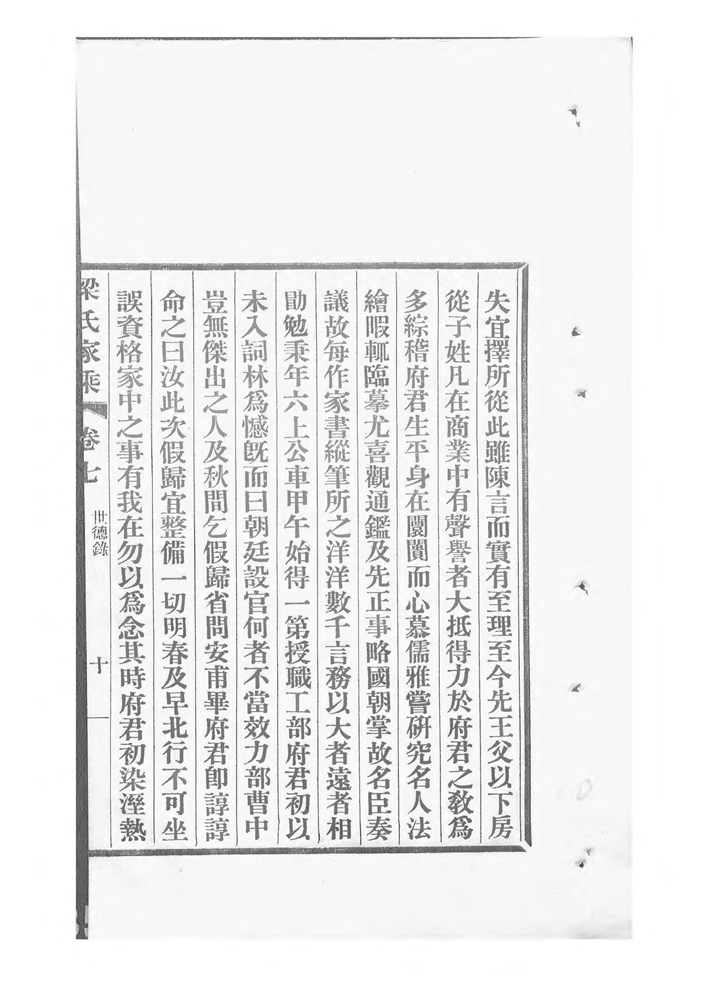 失宜擇所從此雖陳言而實有至理至今先王父以下房
從子姓凡在商業中有聲譽者大抵得力於府君之敎爲
多綜稽府君生平身在闤闠而心慕儒雅嘗硏究名人法
繪暇輒臨摹尤喜觀通鑑及先正事略國朝掌故名臣奏
議故每作家書縱筆所之洋洋數千言務以大者遠者相
勖勉秉年六上公車甲午始得一第授職工部府君初以
未入詞林爲憾旣而曰朝廷設官何者不當效力部曹中
豈無傑出之人及秋間乞假歸省問安甫畢府君卽諄諄
命之曰汝此次假歸宜整備一切明春及早北行不可坐
誤資格家中之事有我在勿以爲念其時府君初染溼熱
梁氏家乘 卷七 世德錄 十